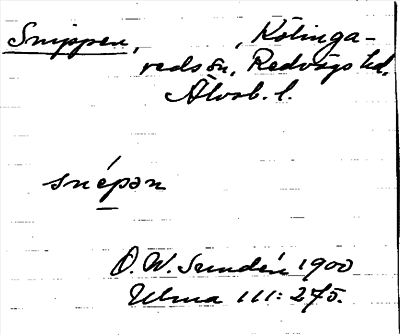 Snippen, , Kölinga-
reds sn, Redvägs hd.
Älvsb. l.
snépən
O. W. Sundén 1900
Ulma 111: 275.